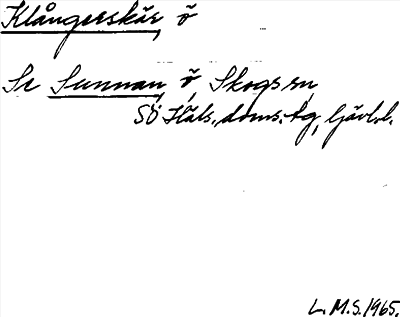 Klångerskär, ö
Se Sunnan, ö, Skogs sn,
SÖ Häls. doms.tg, Gävl.l.
L.M.S. 1965.